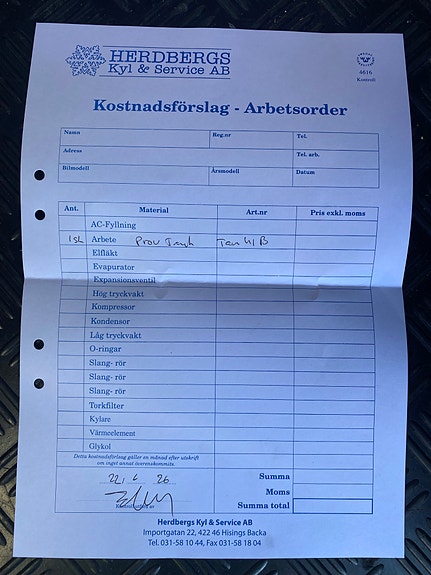 HERDBERGS
Kyl & Service AB
4616
Kontroll
Kostnadsförslag - Arbetsorder
Namn Reg.nr Tel.
Adress Tel. arb.
Bilmodell Årsmodell Datum
Ant. Material Art.nr Pris exkl. moms
AC-Fyllning
1 st Arbete Prov Tryck
Elfläkt
Evaporator
Expansionsventil
Hög tryckvakt
Kompressor
Kondensor
Låg tryckvakt
O-ringar
Slang- rör
Slang- rör
Slang- rör
Torkfilter
Kylare
Värmeelement
Glykol
Detta kostnadsförslag gäller en månad efter utskrift
om inget annat överenskommits.
Summa
Moms
Summa total
Herdbergs Kyl & Service AB
Importgatan 22, 422 46 Hisings Backa
Tel. 031-58 10 44, Fax 031-58 18 04